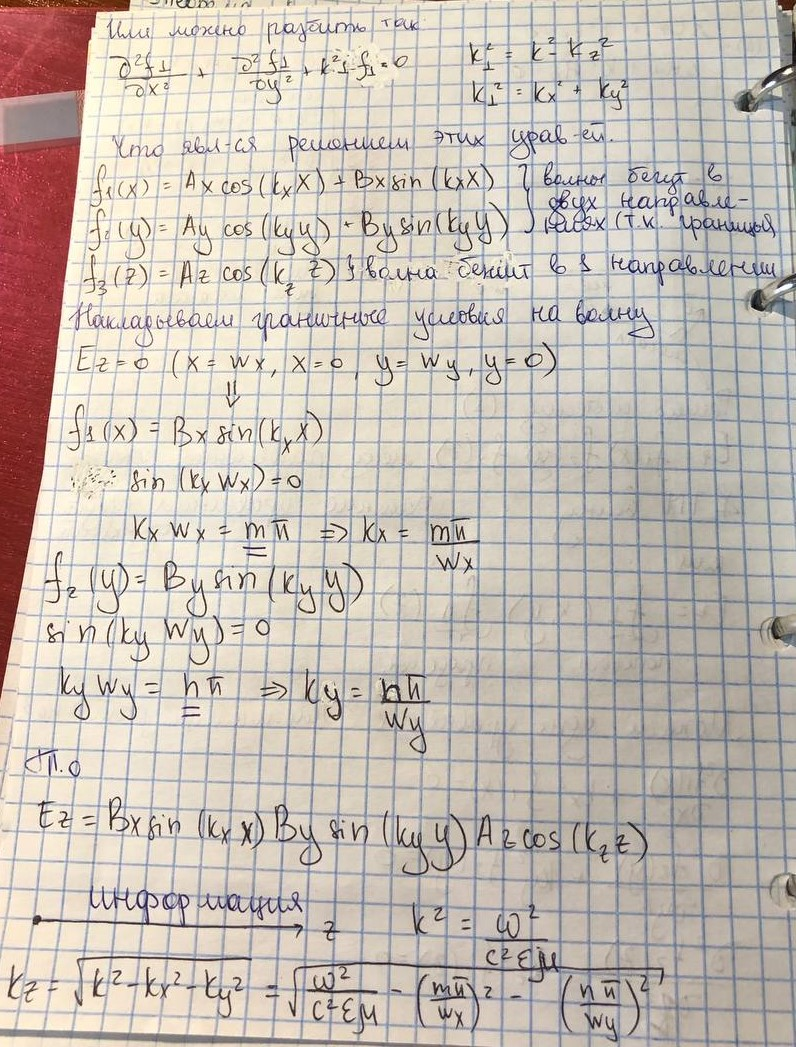 Или можно разбить так
∂²f₁/∂x² + ∂²f₁/∂y² + k²⊥f₁=0
k⊥² = k² - kz²
k⊥² = kx² + ky²
Что явл-ся решением этих урав-ей.
f₁(x) = Ax cos(kxX) + Bx sin(kxX) } волны бегут в
f₂(y) = Ay cos(kyy) + By sin(kyy) } двух направле-
ниях (т.к. границы)
f₃(z) = Az cos(kz z) } волна бежит в 1 направлении
Накладываем граничные условия на волну
Ez=0 (x = wx, x=0, y = wy, y=0)
⇓
f₁(x) = Bx sin(kxX)
sin (kx wx)=0
kx wx = mπ ⇒ kx = mπ/wx
f₂(y) = By sin(kyy)
sin(ky wy)=0
ky wy = nπ ⇒ ky = nπ/wy
Т.о
Ez = Bx sin (kx x) By sin (ky y) Az cos (kz z)
информация
z
k² = ω²/c²εμ
kz = √(k²-kx²-ky²) = √(ω²/c²εμ - (mπ/wx)² - (nπ/wy)²)